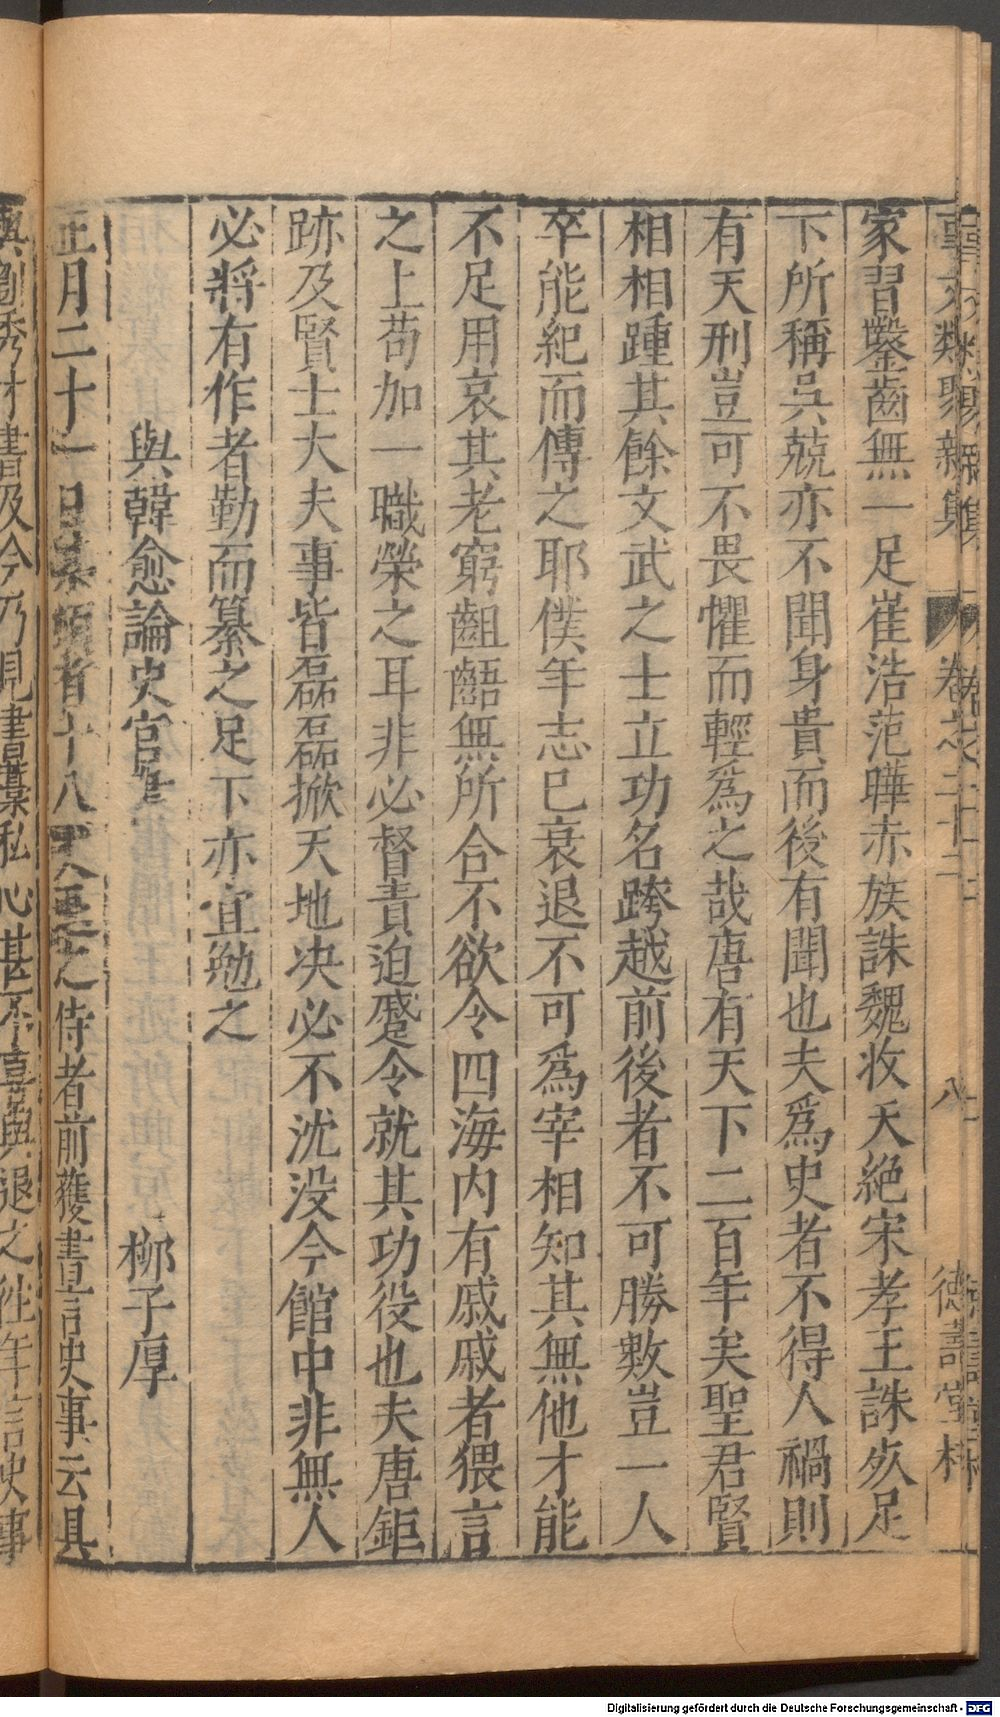 事文類聚新集 卷之二十二 八 德壽堂梓
家習鑿齒無一足崔浩范曄赤族誅魏收夭絕宋孝王誅死足
下所稱吳兢亦不聞身貴而後有聞也夫爲史者不得人禍則
有天刑豈可不畏懼而輕爲之哉唐有天下二百年矣聖君賢
相相踵其餘文武之士立功名跨越前後者不可勝數豈一人
卒能紀而傳之耶僕年志已衰退不可爲宰相知其無他才能
不足用哀其老窮齟齬無所合不欲令四海內有戚戚者猥言
之上苟加一職榮之耳非必督責迫蹙令就其功役也夫唐鉅
跡及賢士大夫事皆磊磊掀天地决必不沈没今館中非無人
必將有作者勤而纂之足下亦宜勉之
與韓愈論史官書 柳子厚
正月二十一日某頓首十八丈退之侍者前獲書言史事云具
與劉秀才書及今乃見書藁私心甚不喜與退之往年言史事
Digitalisierung gefördert durch die Deutsche Forschungsgemeinschaft - DFG